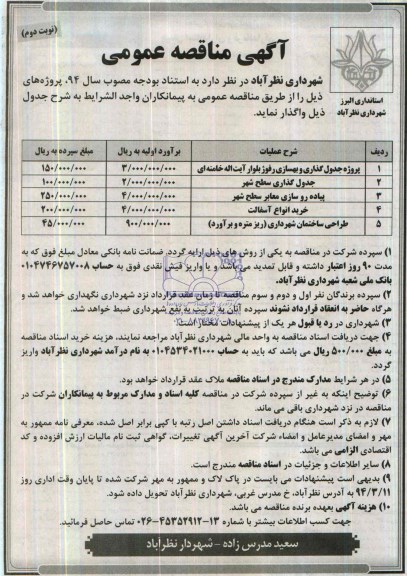 (نوبت دوم)
آگهی مناقصه عمومی
استانداری البرز
شهرداری نظرآباد
شهرداری نظرآباد در نظر دارد به استناد بودجه مصوب سال ۹۴، پروژه‌های
ذیل را از طریق مناقصه عمومی به پیمانکاران واجد الشرایط به شرح جدول
ذیل واگذار نماید.
ردیف شرح عملیات برآورد اولیه به ریال مبلغ سپرده به ریال
۱ پروژه جدول گذاری و بهسازی رفوژ بلوار آیت اله خامنه ای ۳/۰۰۰/۰۰۰/۰۰۰ ۱۵۰/۰۰۰/۰۰۰
۲ جدول گذاری سطح شهر ۲/۰۰۰/۰۰۰/۰۰۰ ۱۰۰/۰۰۰/۰۰۰
۳ پیاده رو سازی معابر سطح شهر ۴/۰۰۰/۰۰۰/۰۰۰ ۲۵۰/۰۰۰/۰۰۰
۴ خرید انواع آسفالت ۴/۰۰۰/۰۰۰/۰۰۰ ۲۰۰/۰۰۰/۰۰۰
۵ طراحی ساختمان شهرداری (ریز متره و برآورد) ۹۰۰/۰۰۰/۰۰۰ ۴۵/۰۰۰/۰۰۰
۱) سپرده شرکت در مناقصه به یکی از روش های ذیل ارایه گردد. ضمانت نامه بانکی معادل مبلغ فوق که به
مدت ۹۰ روز اعتبار داشته و قابل تمدید می باشد و یا واریز فیش نقدی فوق به حساب ۰۱۰۴۷۴۶۷۵۷۰۰۸
بانک ملی شعبه شهرداری نظرآباد.
۲) سپرده برندگان نفر اول و دوم و سوم مناقصه تا زمان عقد قرارداد نزد شهرداری نگهداری خواهد شد و
هرگاه حاضر به انعقاد قرارداد نشوند سپرده آنان به ترتیب به نفع شهرداری ضبط خواهد شد.
۳) شهرداری در رد یا قبول هر یک از پیشنهادات مختار است.
۴) جهت دریافت اسناد مناقصه به واحد مالی شهرداری نظرآباد مراجعه نمایند، هزینه خرید اسناد مناقصه
به مبلغ ۵۰۰/۰۰۰ ریال می باشد که باید به حساب ۰۱۰۴۵۳۴۰۲۱۰۰۰ به نام درآمد شهرداری نظرآباد واریز
گردد.
۵) در هر شرایط مدارک مندرج در اسناد مناقصه ملاک عقد قرارداد خواهد بود.
۶) توضیح اینکه به غیر از سپرده شرکت در مناقصه کلیه اسناد و مدارک مربوط به پیمانکاران شرکت در
مناقصه در نزد شهرداری باقی می ماند.
۷) لازم به ذکر است هنگام دریافت اسناد داشتن اصل رتبه با کپی برابر اصل شده، معرفی نامه ممهور به
مهر و امضای مدیرعامل و امضاء شرکت آخرین آگهی تغییرات، گواهی ثبت نام مالیات ارزش افزوده و کد
اقتصادی الزامی می باشد.
۸) سایر اطلاعات و جزئیات در اسناد مناقصه مندرج است.
۹) بدیهی است پیشنهادات می بایست در پاک لاک و ممهور به مهر شرکت شده تا پایان وقت اداری روز
۹۴/۳/۱۱ به آدرس نظرآباد، خ مدرس غربی، شهرداری نظرآباد تحویل داده شود.
۱۰) هزینه آگهی بعهده برنده مناقصه می باشد.
جهت کسب اطلاعات بیشتر با شماره ۱۳-۰۲۶-۴۵۳۵۲۹۱۲ تماس حاصل فرمائید.
سعید مدرس زاده – شهردار نظرآباد